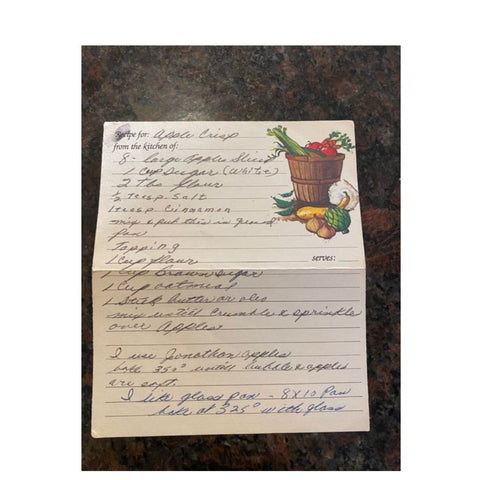 Recipe for: Apple Crisp
from the kitchen of:
8 - large apples Sliced
1 Cup Sugar (White)
2 Tbs flour
½ Teasp Salt
1 teasp Cinnamon
mix & put this in greased
pan
Topping
1 Cup flour
serves:
1 Cup Brown Sugar
1 Cup oatmeal
1 Stick butter or oleo
mix until Crumble & sprinkle
over Apples
I use Jonathan apples
bake 350° until bubble & apples
are soft.
I like glass pan - 8X10 Pan
bake at 325° with glass